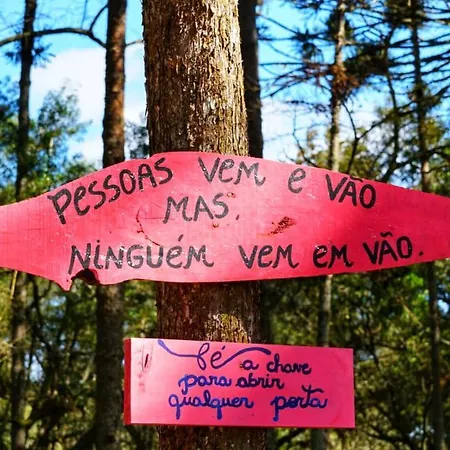 Pessoas vem e vão
mas.
ninguém vem em vão.
fé a chave
para abrir
qualquer porta